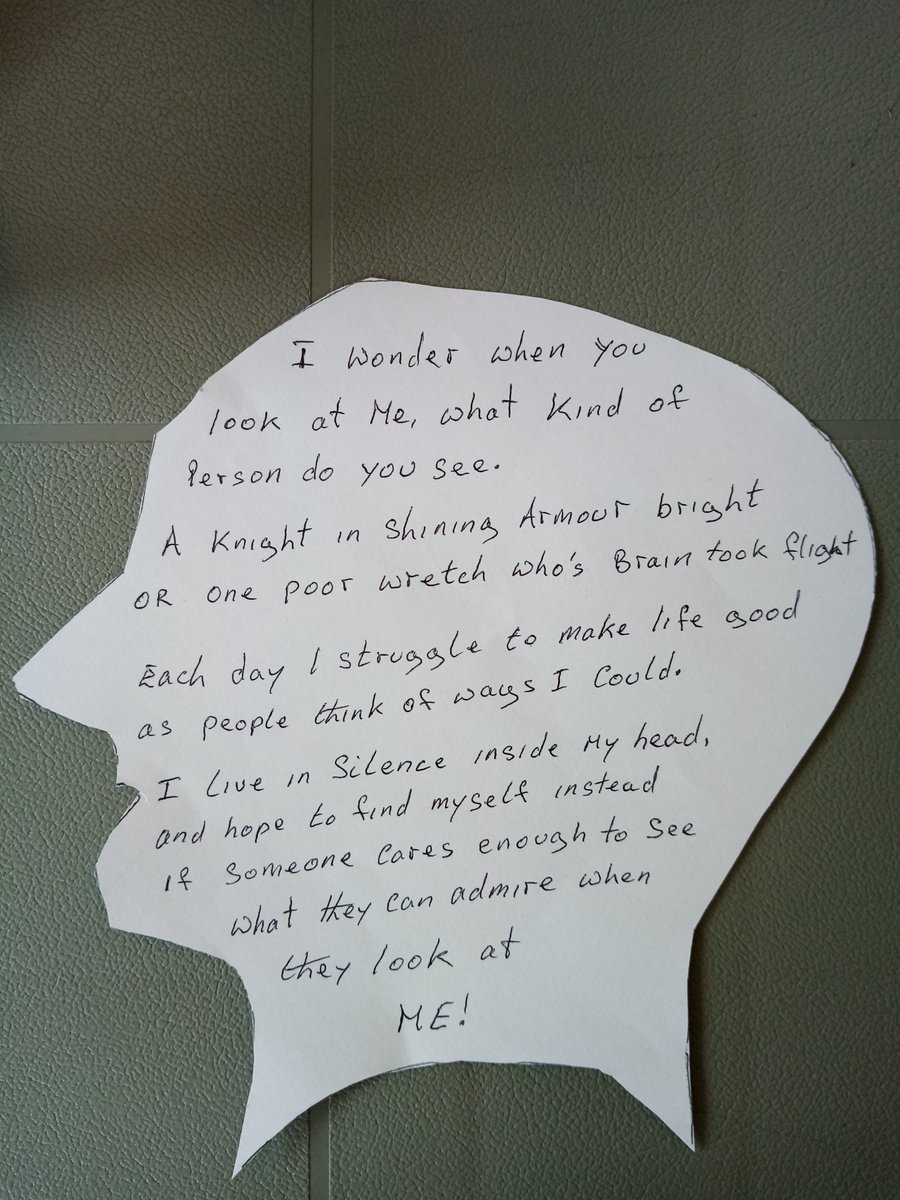 I wonder when you
look at Me, what kind of
Person do you see.
A Knight in Shining Armour bright
OR one poor wretch who's Brain took flight
Each day I struggle to make life good
as people think of ways I Could.
I Live in Silence inside My head,
and hope to find myself instead
if Someone Cares enough to See
what they Can admire when
they look at
ME!